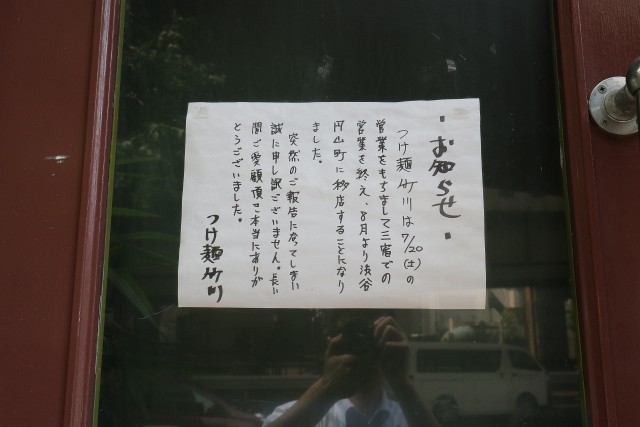 ・お知らせ・
つけ麺竹川は7/20(土)の
営業をもちまして三宿での
営業を終え、8月より渋谷
円山町に移店することになり
ました。
突然のご報告になってしまい
誠に申し訳ございません。長い
間ご愛顧頂き本当にありが
とうございました。
つけ麺竹川